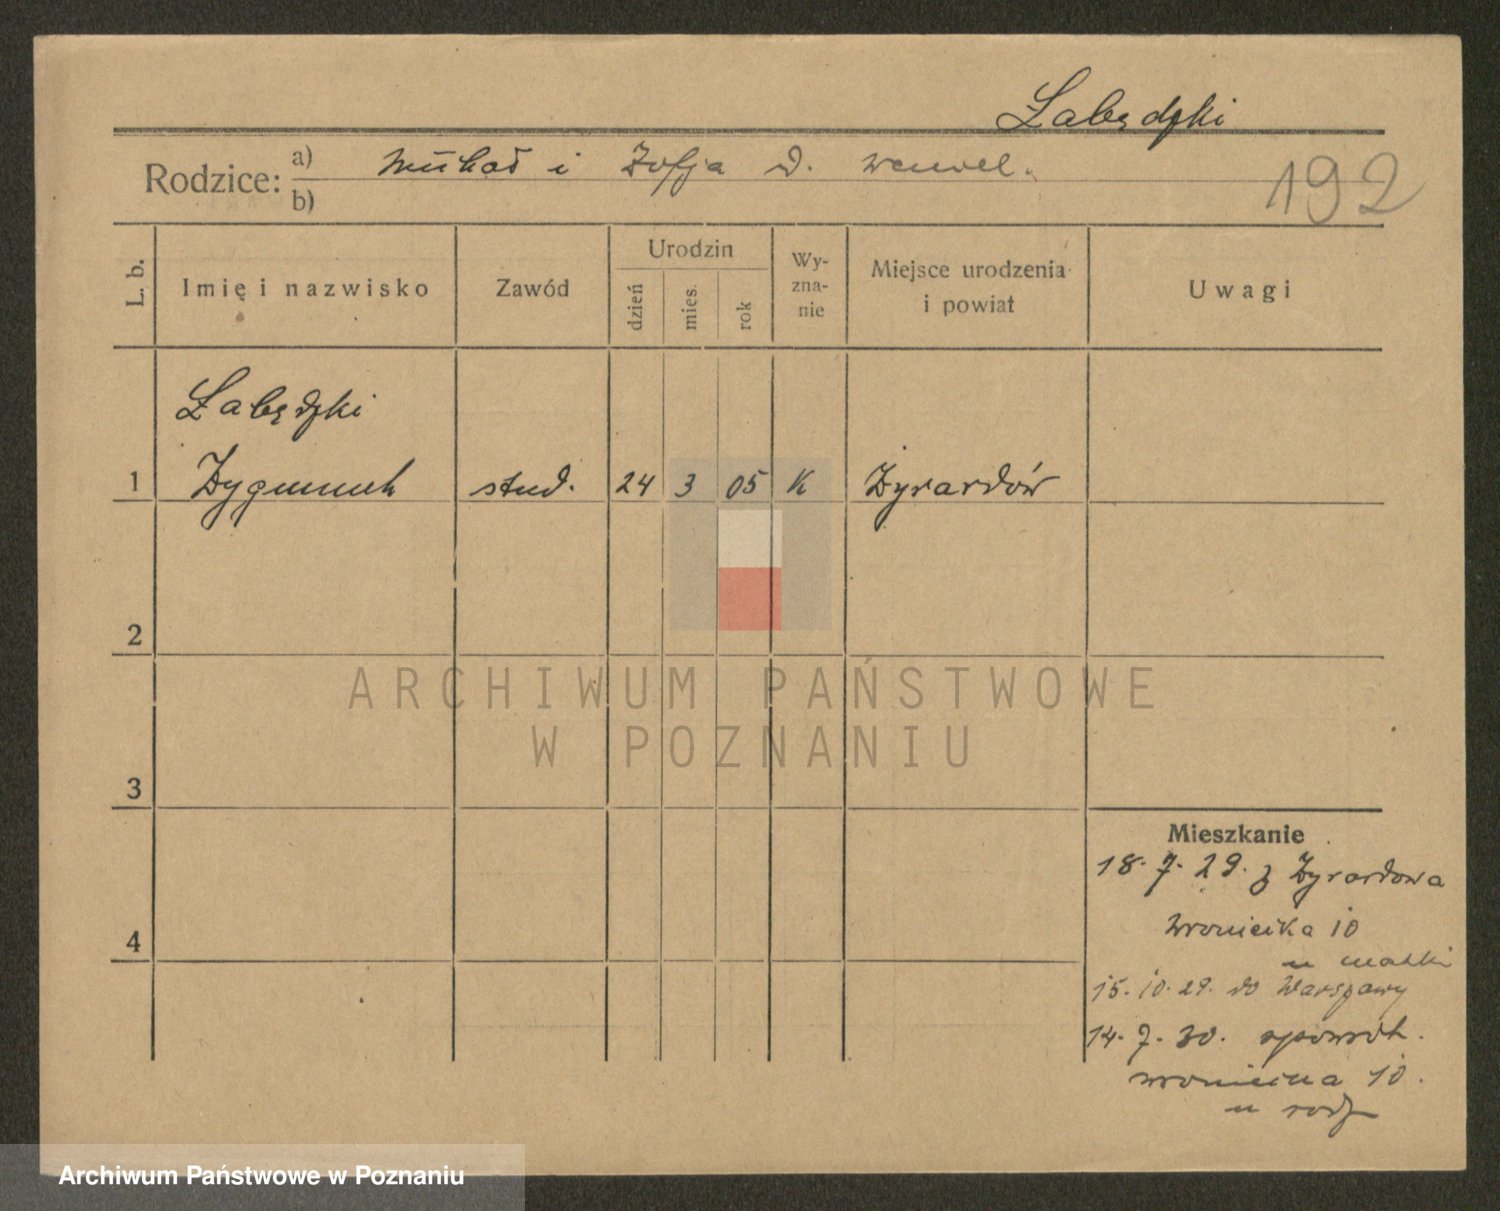 Łabędzki
Rodzice: a) Michał i Zofja d.
b)
192
L. b. Imię i nazwisko Zawód Urodzin dzień mies. rok Wy-zna-nie Miejsce urodzenia i powiat Uwagi
Łabędzki
1 Zygmunt stud. 24 3 05 K Żyrardów
2
3
4
Mieszkanie
18. 7. 29. z Żyrardowa
Wroniecka 10
u matki
15. 10. 29. do Warszawy
14. 7. 30. spowrót.
Wroniecka 10.
u rodz
ARCHIWUM PAŃSTWOWE
W POZNANIU
Archiwum Państwowe w Poznaniu